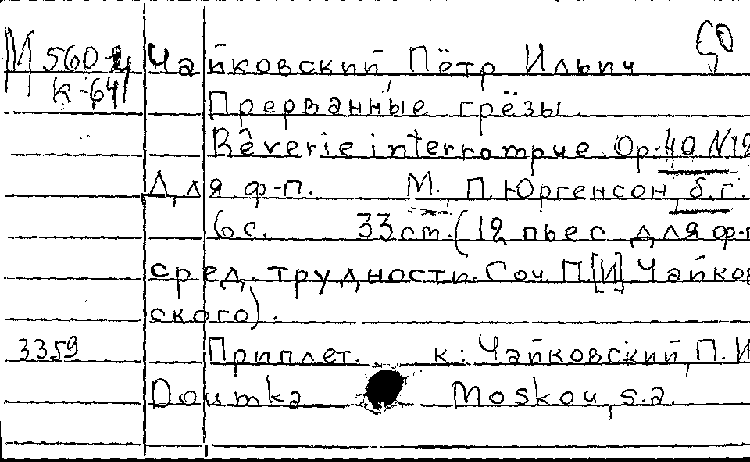 М 560-4 Чайковский, Пётр Ильич 50
К-641
Прерванные грёзы.
Rêverie interrompue. Op. 40 N12
Для ф-п. М. П. Юргенсон, б.г.
6 с. 33 см. (12 пьес для ф-п
сред. трудности. Соч. П[И] Чайков
ского).
3359 Приплет. к: Чайковский, П.И
Doumka Moskou, s.a.